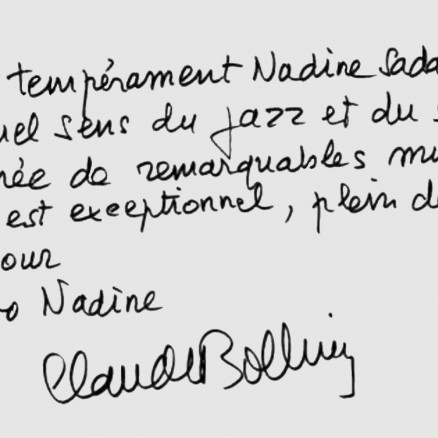 tempérament Nadine Sada
uel sens du jazz et du s
née de remarquables mu
est exceptionnel, plein d
our
o Nadine
Claude Bolling